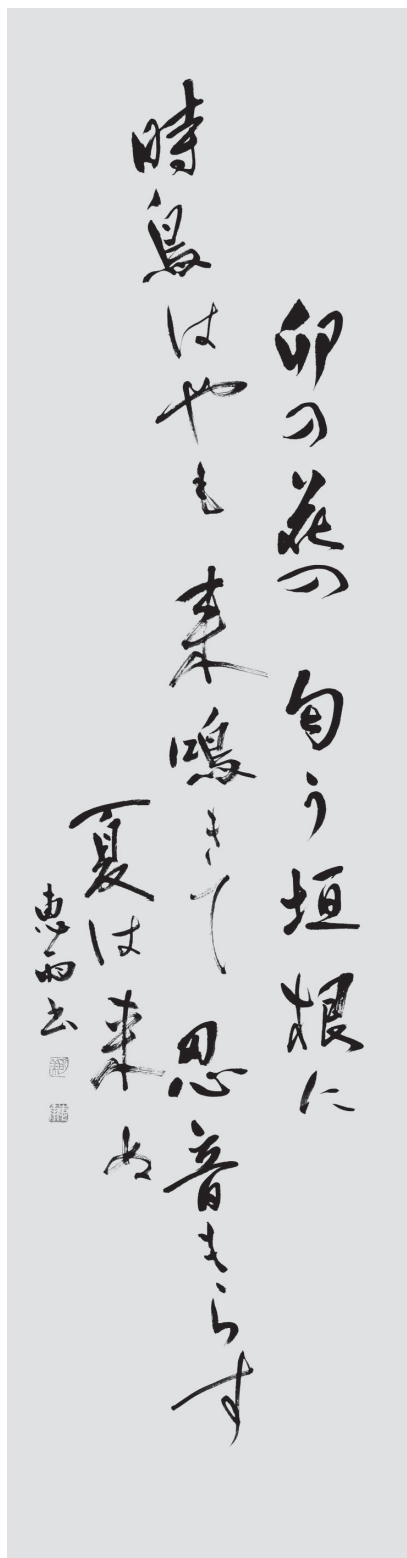 卯の花の匂う垣根に
時鳥はやも来鳴きて忍音もらす
夏は来ぬ
恵雨書